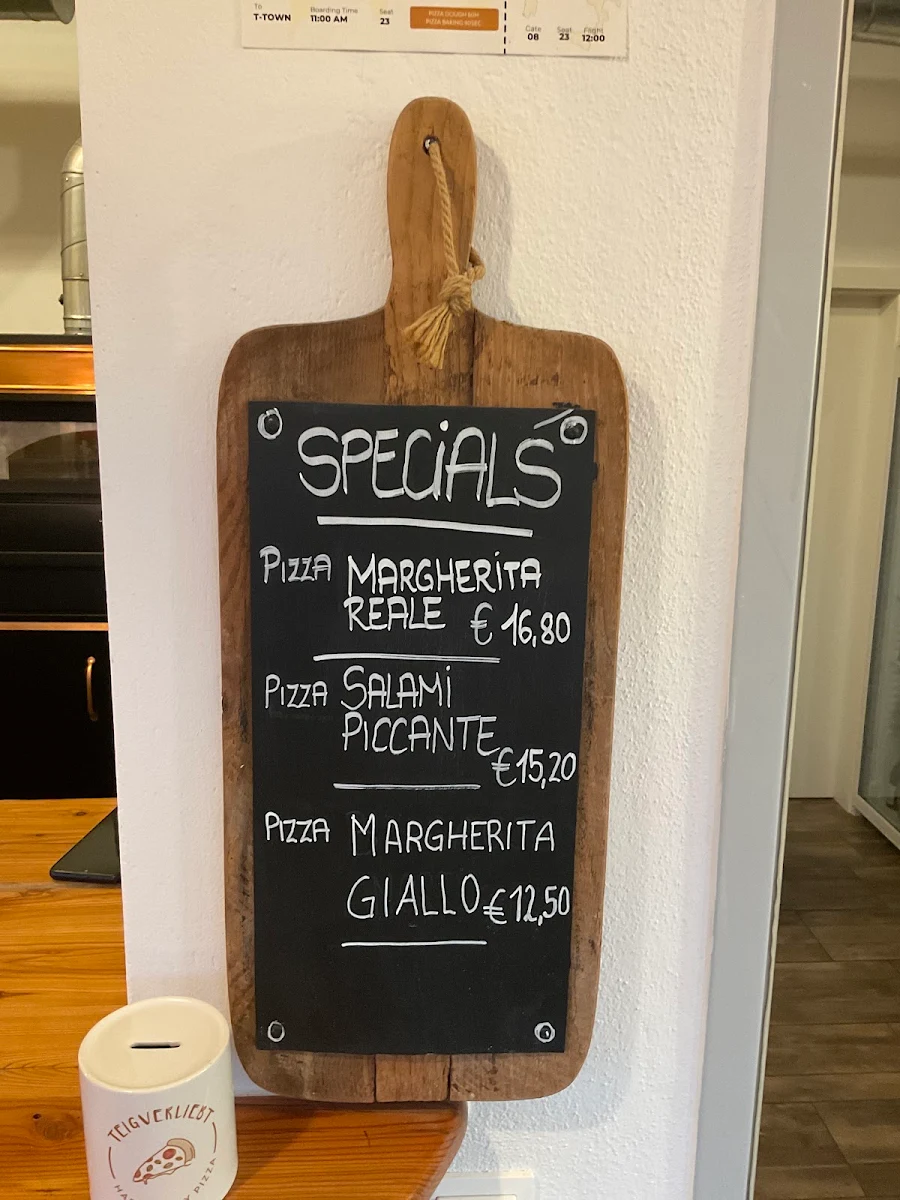 To Boarding Time Seat
T-TOWN 11:00 AM 23
PIZZA DOUGH 60H
PIZZA BAKING 60SEC
Gate Seat Flight
08 23 12:00
SPECiALS
PIZZA MARGHERiTA
REALE € 16,80
PIZZA SALAMi
PICCANTE
€15,20
PIZZA MARGHERITA
GIALLO €12,50
TEIGVERLIEBT
PIZZA